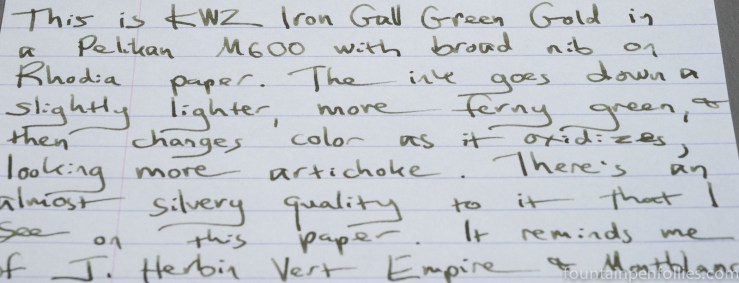 This is KWZ Iron Gall Green Gold in
a Pelikan M600 with broad nib on
Rhodia paper. The ink goes down a
slightly lighter, more ferny green, &
then changes color as it oxidizes,
looking more artichoke. There's an
almost silvery quality to it that I
see on this paper. It reminds me
of J. Herbin Vert Empire & Montblanc
fountainpenfollies.com